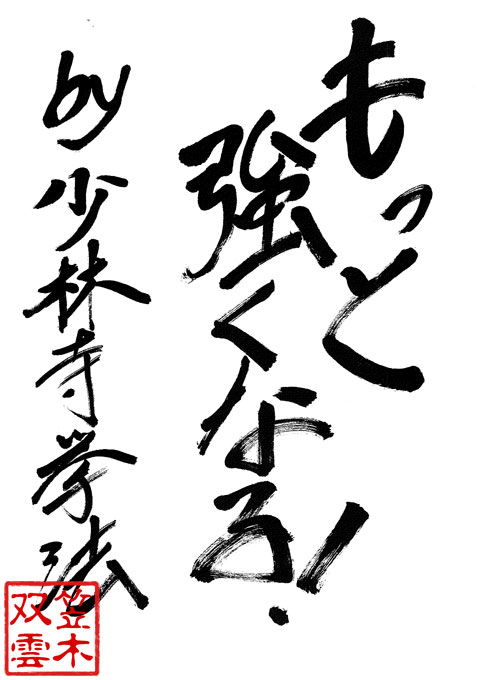 もっと
強くなる!
by 少林寺拳法
笠木
双雲